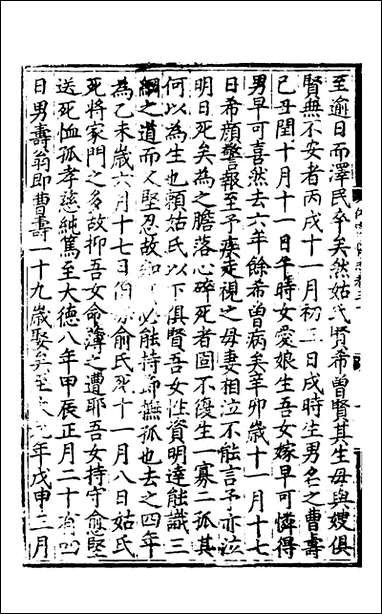 至逾日而澤民卒矣然姑氏賢希曽賢其生母與嫂俱
賢無不安者丙戌十一月初三日戌時生男名之曹壽
己丑閏十月十一日午時女愛娘生吾女嫁早可憐得
男早可喜然去六年餘希曽病矣辛卯歲十一月十七
日希顔警報至予疾走視之母妻相泣不能言予亦泣
明日死矣為之膽落心碎死者固不復生一寡二孤其
何以為生也頼姑氏以下俱賢吾女性資明達能識三
綱之道而人堅忍故知必能持節撫孤也去之四年
為乙未歲六月十七日俞氏死十一月八日姑氏
死將家門之多故抑吾女命薄之遭耶吾女持守愈堅
送死恤孤孝慈純篤至大德八年甲辰正月二十有四
日男壽翁即曹壽一十九歲娶矣至年戊申二月